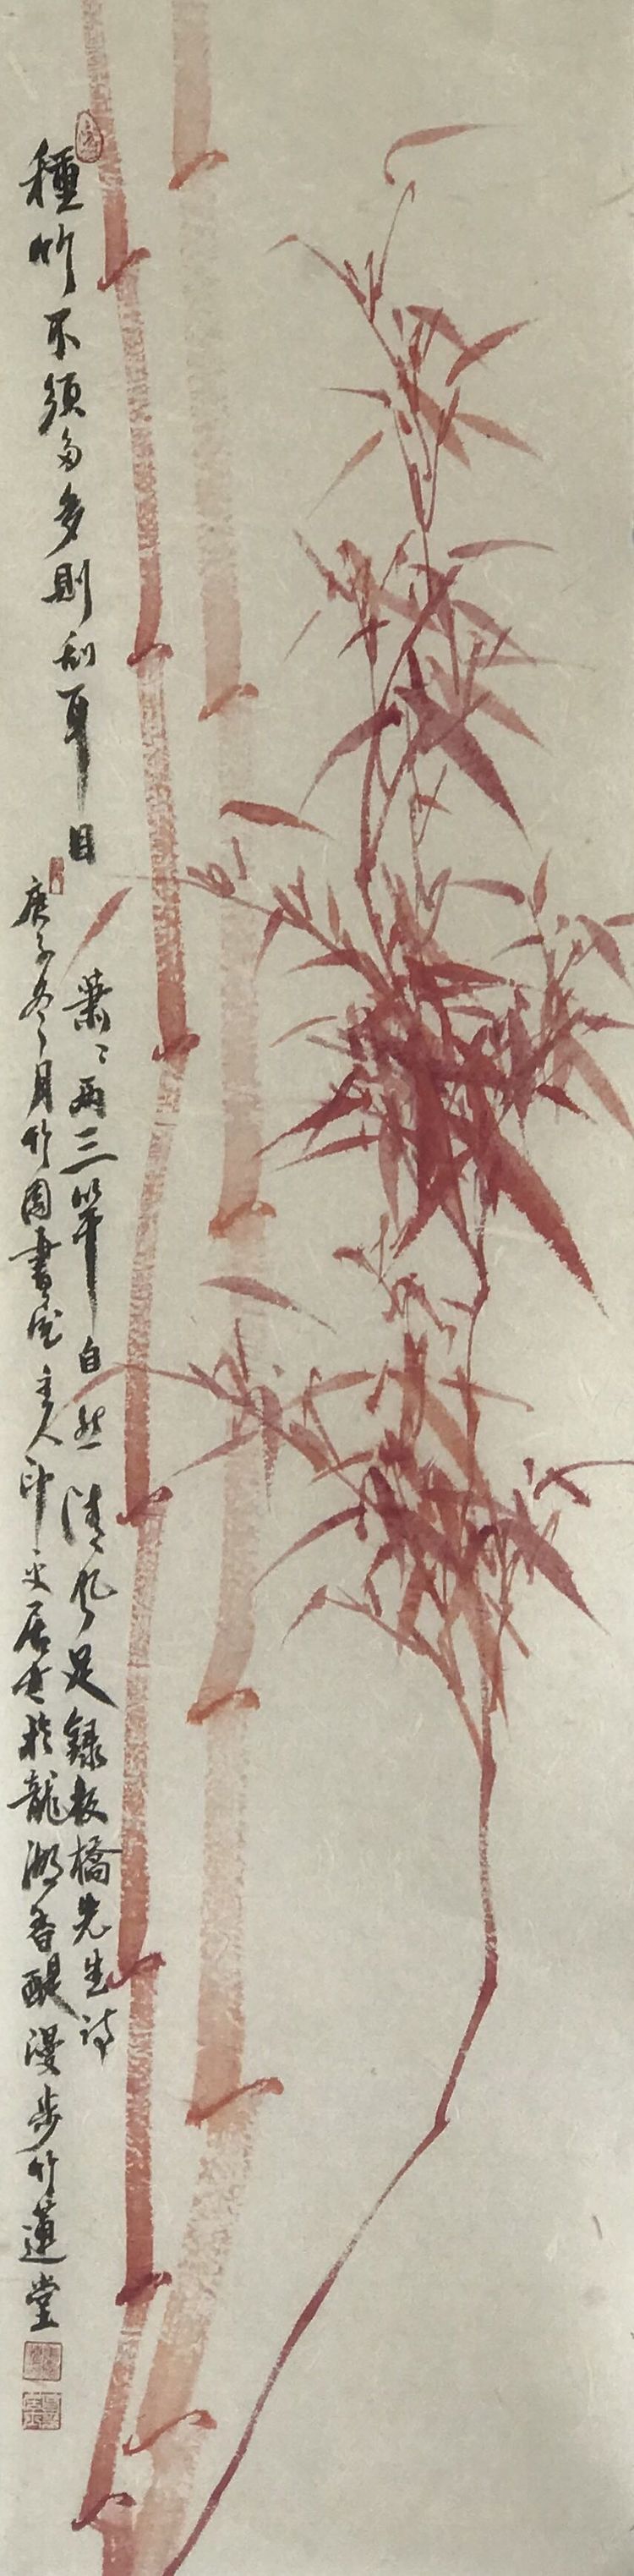 種竹不須多多則刮耳目
蕭〻兩三竿自然清風足錄板橋先生詩
庚子冬月竹園書屋主人印文居士於龍湖香醍漫步竹蓮堂